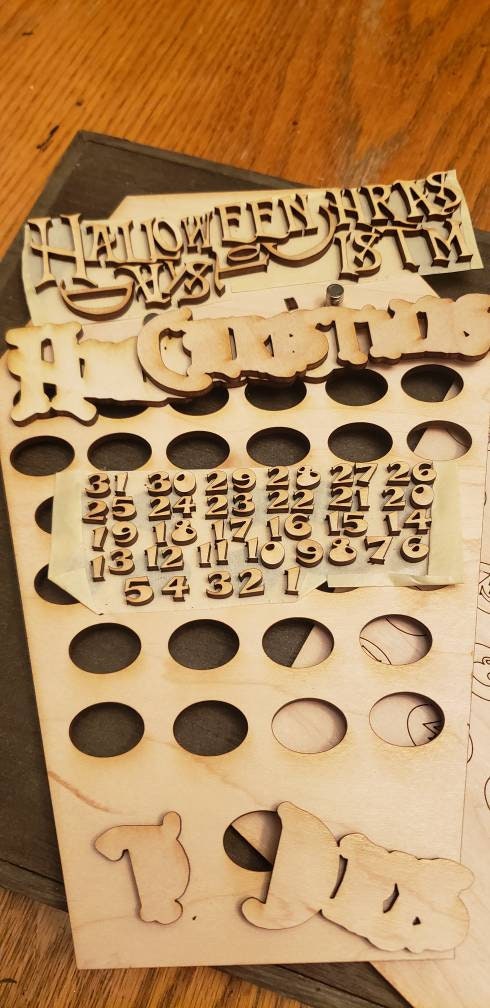 HALLOWEEN HRAS
DAYS ISTM
31 30 29 28 27 26
25 24 23 22 21 20
19 18 17 16 15 14
13 12 11 10 9 8 7 6
5 4 3 2 1